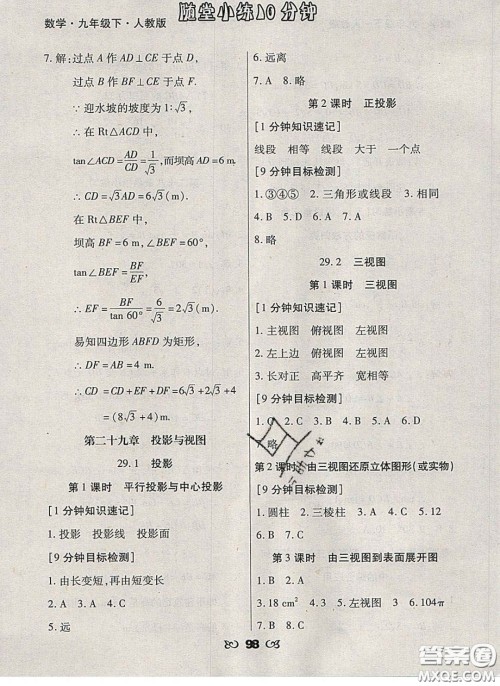 随堂小练10分钟
数学·九年级下·人教版
7.解:过点 A 作 AD⊥CE 于点 D,
过点 B 作 BF⊥CE 于点 F,
∵ 迎水坡的坡度为 1:√3,
∴ 在 Rt△ACD 中,
tan∠ACD = AD/CD = 1/√3,而坝高 AD = 6 m,
∴ CD = √3AD = 6√3(m).
∵ 在 Rt△BEF 中,
坝高 BF = 6 m, ∠BEF = 60°,
tan∠BEF = BF/EF,
∴ EF = BF/tan 60° = 6/√3 = 2√3(m).
易知四边形 ABFD 为矩形,
∴ DF = AB = 4 m.
∴ CD = CD + EF + DF = 6√3 + 2√3 + 4
= (8√3 + 4)m.
第二十九章 投影与视图
29.1 投影
第 1 课时 平行投影与中心投影
[1 分钟知识速记]
1.投影 投影线 投影面
[9 分钟目标检测]
1.由长变短,再由短变长
2.A 3.A 4.C
5.远
6.远离
7.A 8.略
第 2 课时 正投影
[1 分钟知识速记]
线段 相等 线段 大于 一个点
[9 分钟目标检测]
1.③④⑤ 2.三角形或线段 3.相同
4.B 5.D 6.A 7.D
8.略
29.2 三视图
第 1 课时 三视图
[1 分钟知识速记]
1.主视图 俯视图 左视图
2.左上边 俯视图 左视图
3.长对正 高平齐 宽相等
[9 分钟目标检测]
1.C 2.C 3.B 4.A 5.C 6.C
7.略
第 2 课时 由三视图还原立体图形(或实物)
[9 分钟目标检测]
1.圆柱 2.三棱柱 3.C 4.C 5.12
6.B 7.B 8.C
第 3 课时 由三视图到表面展开图
[9 分钟目标检测]
1.B 2.A
3.18 cm² 4.3 5.左视图 6.104π
7.B 8.C
98
答案圈